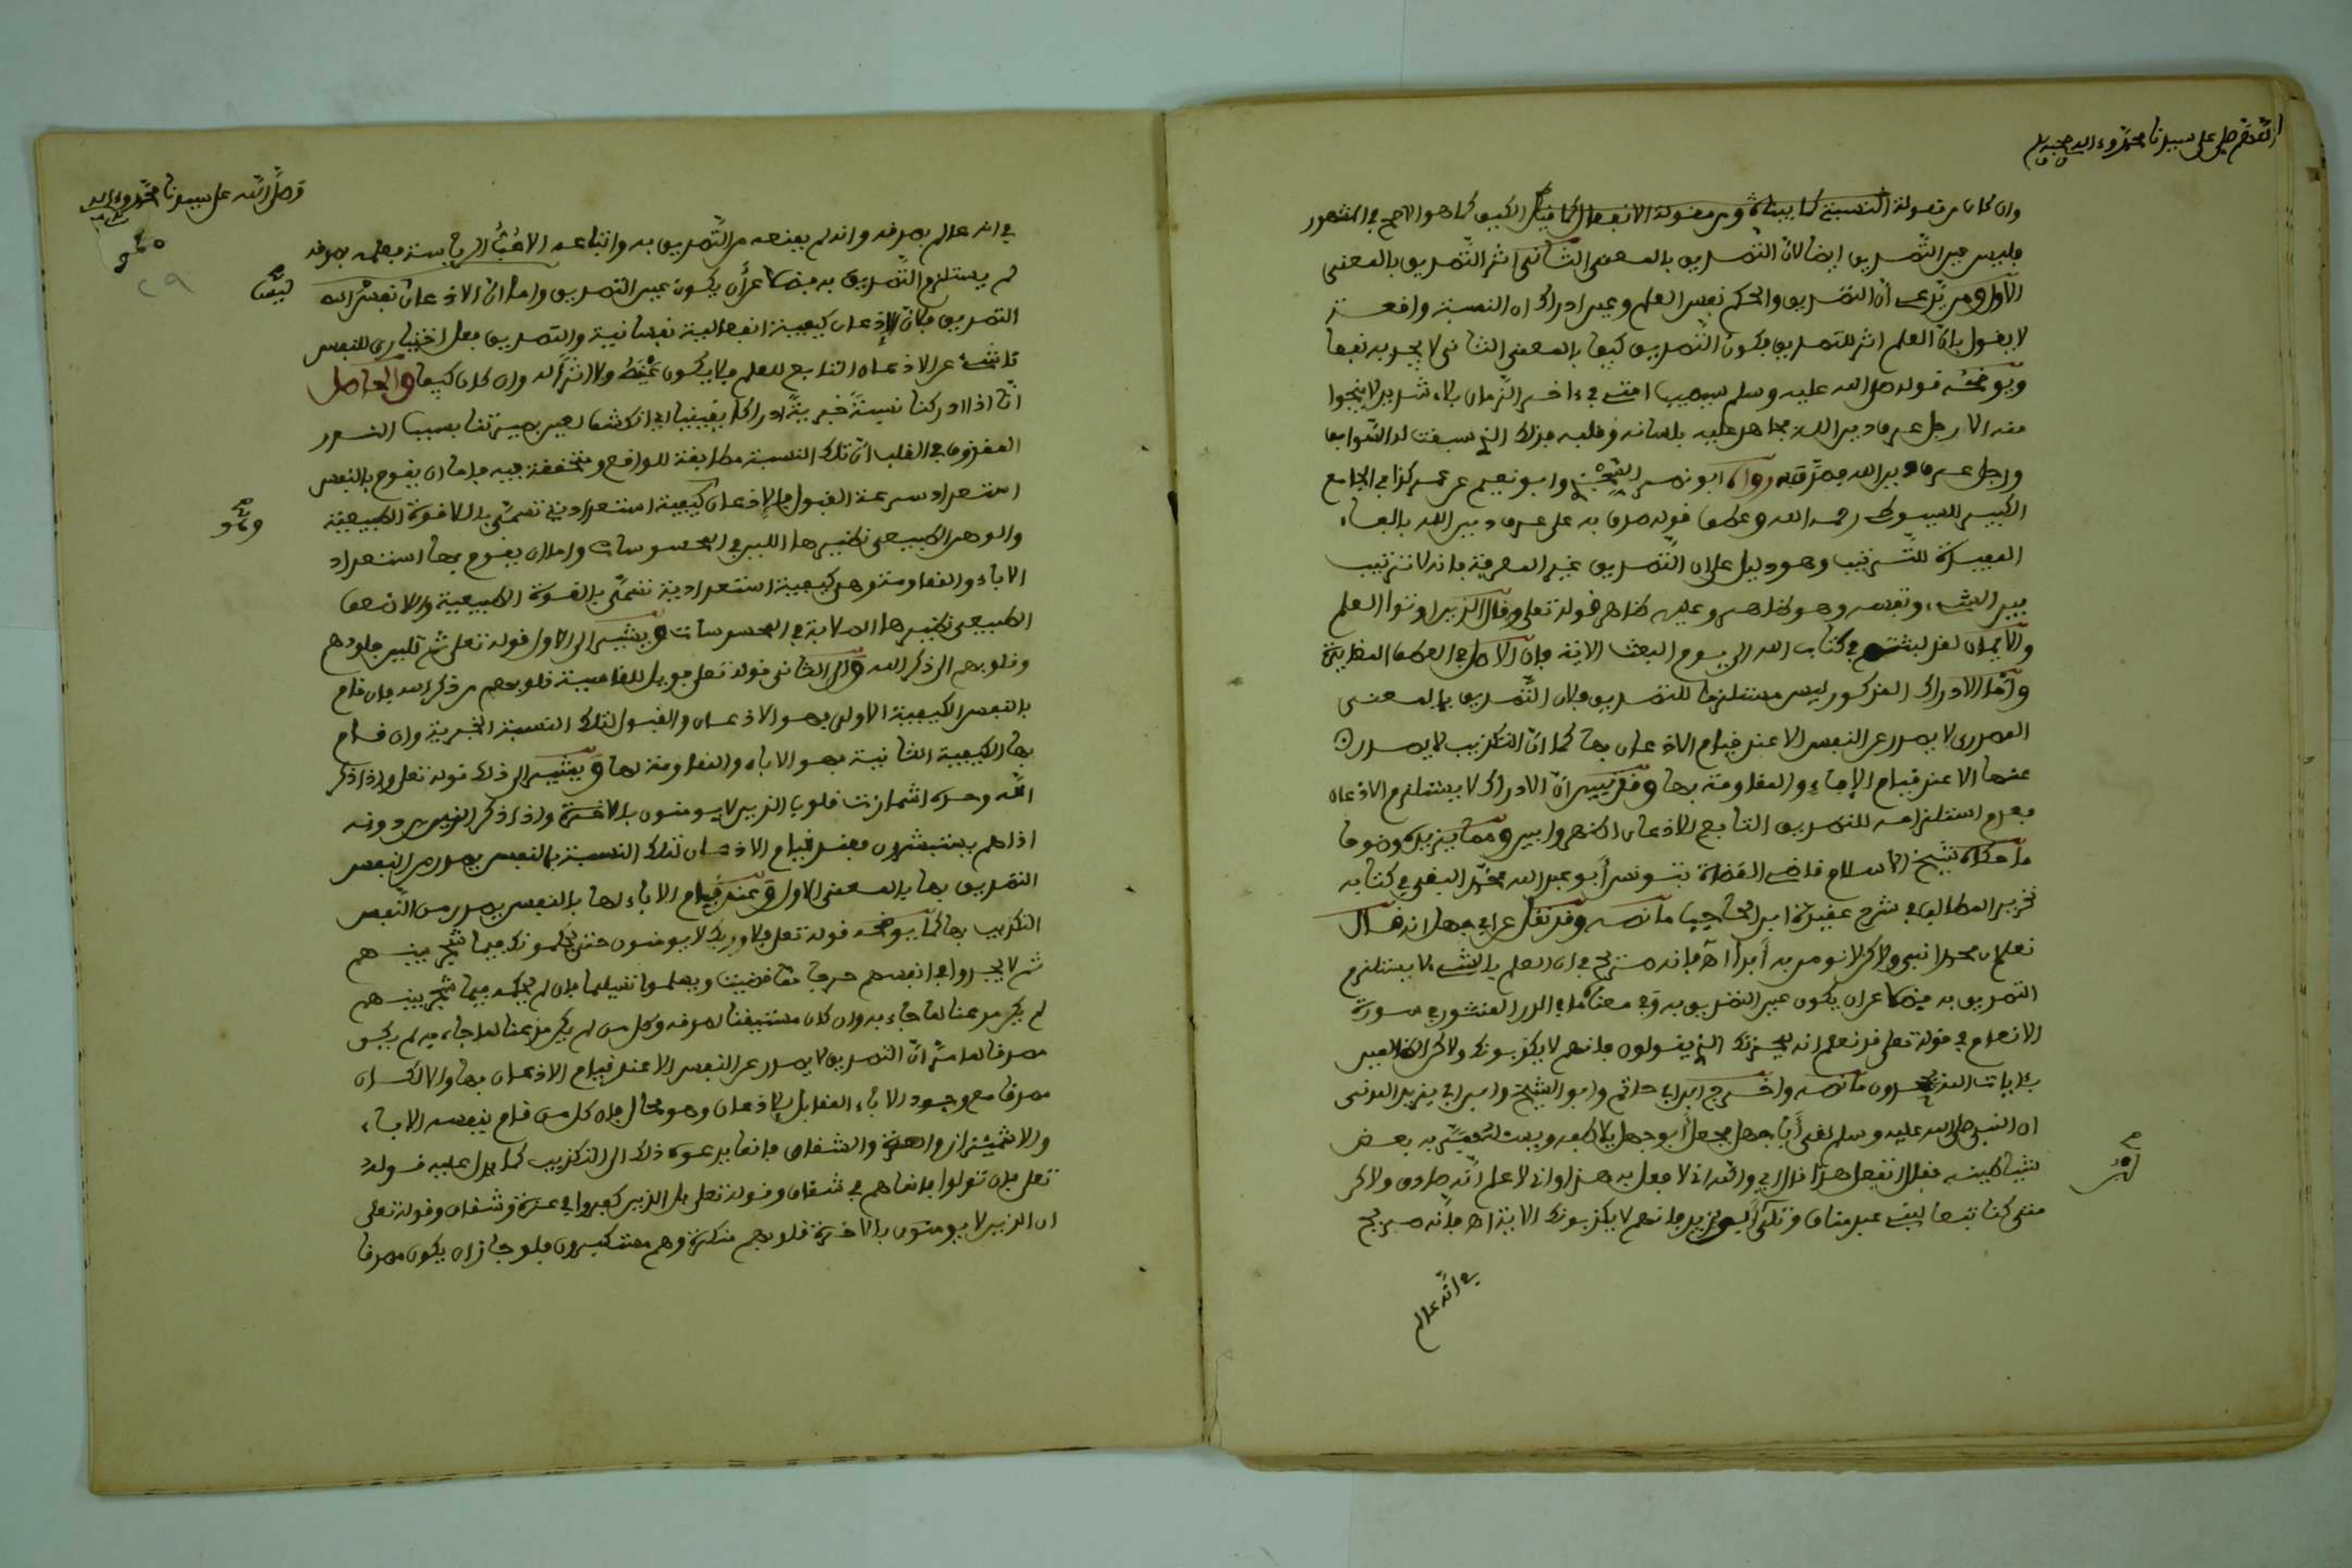 اللهم صل على سيدنا محمد وءاله وصحبه وسلم
وان كان من مقولة النسبة كما بيناه ومن مقولة الانفعال الكيف كما هو الاصح المشهور
فليس عين التصديق ايضا لان التصديق بالمعنى الثاني اثر التصديق بالمعنى
الاول ومن يدعي أن التصديق والحكم نفس العلم وعين ادراك ان النسبة واقعة
لا يقول بان العلم اثر للتصديق فكون التصديق كيفا بالمعنى الثاني لا يجديه نفعا
ويوضحه قوله صلى الله عليه وسلم سيصيب امتي في ءاخر الزمان بلاء شديد لا ينجوا
منه الا رجل عرف دين الله فجاهد عليه بلسانه وقلبه فذلك الذي سبقت له السوابق
ورجل عرف دين الله فصدق به رواه ابو نصر وابو نعيم عن عمر كذا في الجامع
الكبير للسيوطي رحمه الله وعطف قوله صدق به على عرف دين الله بالفاء
المفيدة للترتيب وهو دليل على ان التصديق غير المعرفة فانه لا ترتيب
بين الشيء ونفسه وهو ظاهر وعليه ظاهر قوله تعلى وقال الذين اوتوا العلم
والايمان لقد لبثتم في كتاب الله الى يوم البعث الاية فان الاصل في العطف المغايرة
واما الادراك المذكور ليس مستلزما للتصديق فلان التصديق بالمعنى
المصدري لا يصدر عن النفس الا عند قيام الاذعان بها كما ان التكذيب لا يصدر
عنها الا عند قيام الإباء والمقاومة بها وقد تبين ان الادراك لا يستلزم الاذعان
فعدم استلزامه للتصديق التابع للاذعان اظهر وابين ومما يزيده وضوحا
ما حكاه شيخ الاسلام قاضي القضاة بتونس أبو عبد الله محمد في كتابه
تحرير المطالب في شرح عقيدة ابن الحاجب ما نصه وقد نقل عن ابي جهل انه قال
نعلم ان محمدا نبي ولاكن لا نومن به أبدا اه فإنه صريح في ان العلم بالشيء لا يستلزم
التصديق به فضلا عن ان يكون عين التصديق به وفي معناه ما في الدر المنثور في سورة
الانعام في قوله تعلى قد نعلم انه ليحزنك الذي يقولون فإنهم لا يكذبونك ولاكن الظالمين
بئايات الله يجحدون ما نصه واخرج ابن ابي حاتم وابو الشيخ عن ابي يزيد المدني
ان النبي صلى الله عليه وسلم لقي أبا جهل فجعل أبو جهل يلاطفه ويسائله فمر به بعض
شياطينه فقال اتفعل هذا قال اي والله اني لافعل به هذا واني لاعلم انه صادق ولاكن
متى كنا تبعا لبني عبد مناف وتلى أبو يزيد فانهم لا يكذبونك الاية اه فانه صريح
في انه عالم
وصلى الله على سيدنا محمد وءاله
في انه عالم بصدقه وانه لم يمنعه من التصديق به واتباعه الا حب الرياسة فعلمه بصدقه
لم يستلزم التصديق به فضلا عن أن يكون عين التصديق واما ان الاذعان نفس
التصديق فلان الإذعان كيفية انفعالية نفسانية والتصديق فعل اختياري للنفس
ناشئ عن الاذعان التابع للعلم فلا يكون ولا اثرا له وان كان كيفا والحاصل
انا اذا ادركنا نسبة خبرية ادراكا يقينيا اي انكشف لعين بصيرتنا بسبب النور
المقذوف في القلب أن تلك النسبة مطابقة للواقع ومتحققة فيه فاما ان يقوم بالنفس
استعداد سرعة القبول والإذعان كيفية استعدادية تسمى باللاقوة الطبيعية
والوهن الطبيعي نظيرها اللين في المحسوسات واما ان يقوم بها استعداد
الاباء والمقاومة وهي كيفية استعدادية تسمى بالقوة الطبيعية واللاضعف
الطبيعي نظيرها الصلابة في المحسوسات ويشير الى الاول قوله تعلى ثم تلين جلودهم
وقلوبهم الى ذكر الله والى الثاني قوله تعلى فويل للقاسية قلوبهم من ذكر الله فان قام
بالنفس الكيفية الاولى فهو الاذعان والقبول لتلك النسبة الخبرية وان قام
بها الكيفية الثانية فهو الاباء والمقاومة لها ويشير الى ذلك قوله تعلى واذا ذكر
الله وحده اشمأزت قلوب الذين لا يومنون بالاخرة واذا ذكر الذين من دونه
اذا هم يستبشرون فعند قيام الاذعان لتلك النسبة بالنفس يصدر من النفس
التصديق بها بالمعنى الاول وعند قيام الاباء لها بالنفس يصدر من النفس
التكذيب بها كما يوضحه قوله تعلى فلا وربك لا يومنون حتى يحكموك فيما شجر بينهم
ثم لا يجدوا في انفسهم حرجا مما قضيت ويسلموا تسليما فان لم يحكمه فيما شجر بينهم
لم يكن مذعنا لما جاء به وان كان مستيقنا لصدقه وكل من لم يكن مذعنا لما جاء به لم يكن
مصدقا لما مر ان التصديق لا يصدر عن النفس الا عند قيام الاذعان بها والا لكان
مصدقا مع وجود الاباء المقابل للاذعان وهو محال فان كل من قام بنفسه الاباء
والاشمئزاز والعزة والشقاق فإنما يدعوه ذلك الى التكذيب كما يدل عليه قوله
تعلى فان تولوا فإنما هم في شقاق وقوله تعلى بل الذين كفروا في عزة وشقاق وقوله تعلى
ان الذين لا يومنون بالاخرة قلوبهم منكرة وهم مستكبرون فلو جاز ان يكون مصدقا